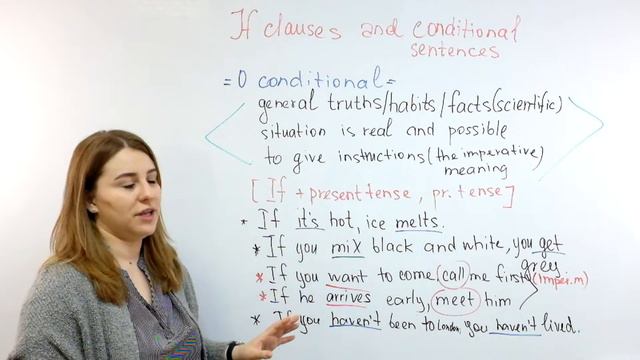 If clauses and conditional
sentences
= 0 conditional =
general truths/habits/facts(scientific)
situation is real and possible
to give instructions (the imperative)
meaning
[ If + present tense, pr. tense ]
* If it's hot, ice melts.
* If you mix black and white, you get
grey
* If you want to come call me first (imper.m)
* If he arrives early, meet him
* If you haven't been to London, you haven't lived.